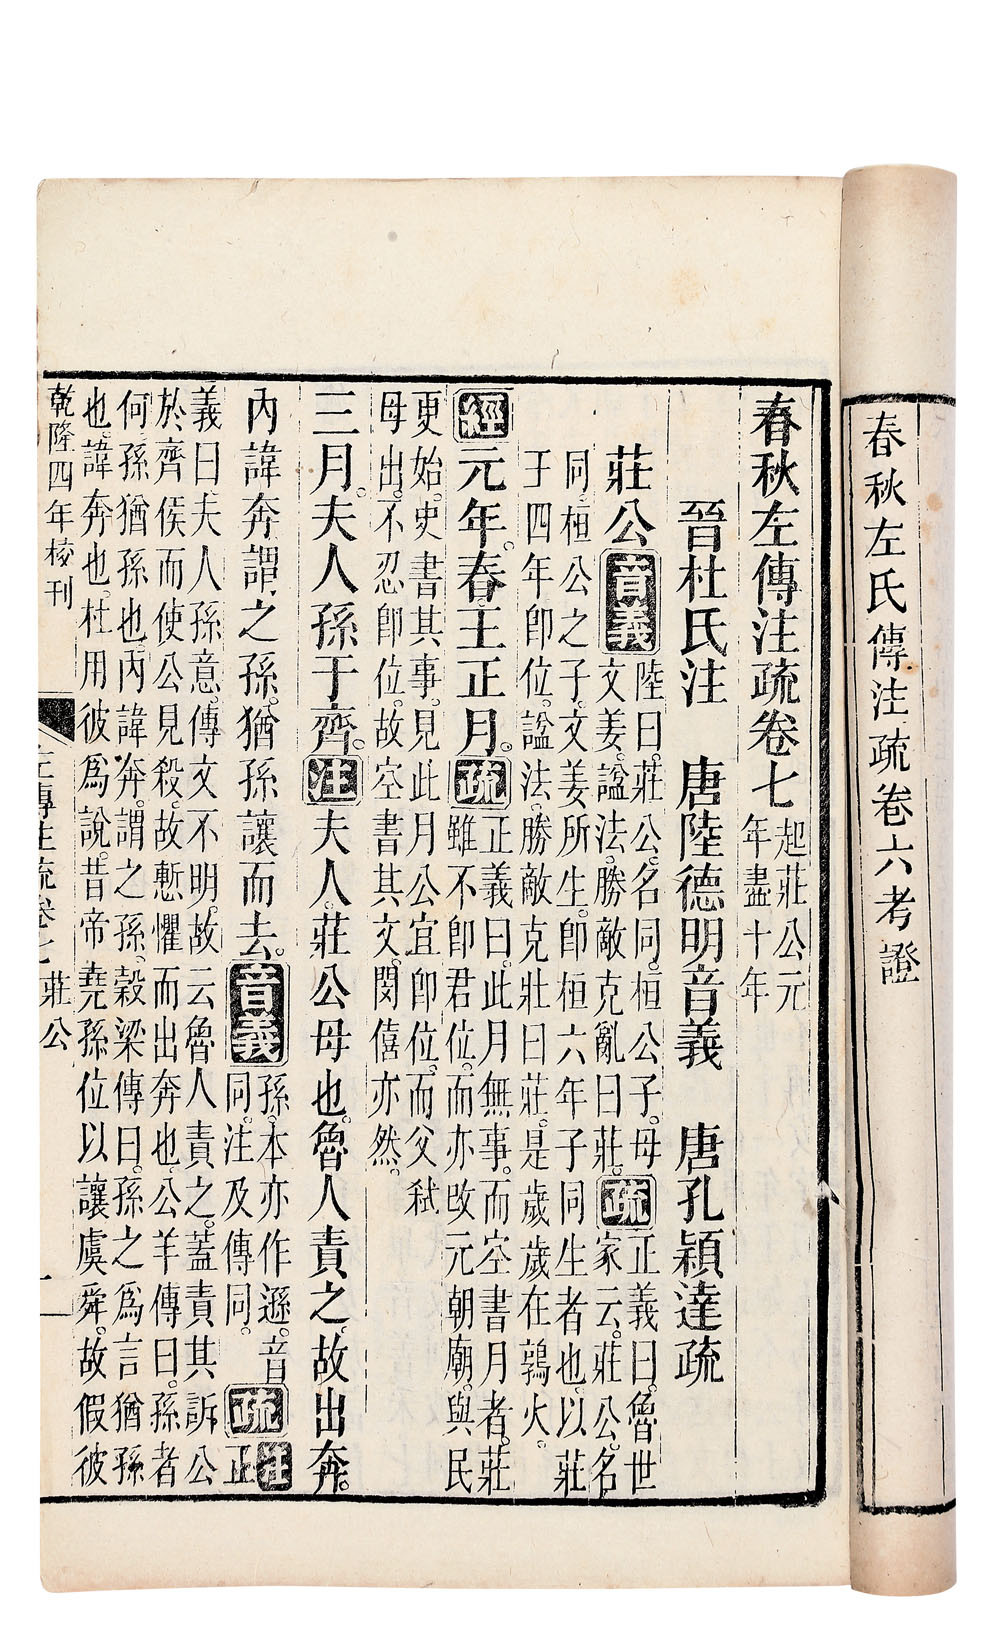 春秋左氏傳注疏卷六考證
春秋左傳注疏卷七
起莊公元
年盡十年
晉杜氏注 唐陸德明音義 唐孔穎達疏
莊公音義
陸曰。莊公名同。桓公子。母
文姜。諡法。勝敵克亂曰莊。
疏
正義曰。魯世
家云。莊公名
同。桓公之子。文姜所生。卽桓六年子同生者也。以莊
于四年卽位。諡法。勝敵克壯曰莊。是歲歲在鶉火。
經元年。春王正月。疏
正義曰。此月無事。而空書月者。莊
雖不卽君位。而亦改元朝廟。與民
更始。史書其事。見此月公宜卽位。而父弑
母出。不忍卽位。故空書其文。閔僖亦然。
三月。夫人孫于齊。注夫人。莊公母也。魯人責之。故出奔。
內諱奔。謂之孫。猶孫讓而去。音義
孫。本亦作遜。音
同。注及傳同。
注疏
正
義曰。夫人孫意。傳文不明。故云魯人責之。蓋責其訴公
於齊侯而使公見殺。故慙懼而出奔也。公羊傳曰。孫者
何。孫猶孫也。內諱奔。謂之孫。穀梁傳曰。孫之爲言猶孫
也。諱奔也。杜用彼爲說。昔帝堯孫位以讓虞舜。故假彼
乾隆四年校刊
左傳注疏卷七 莊公
一